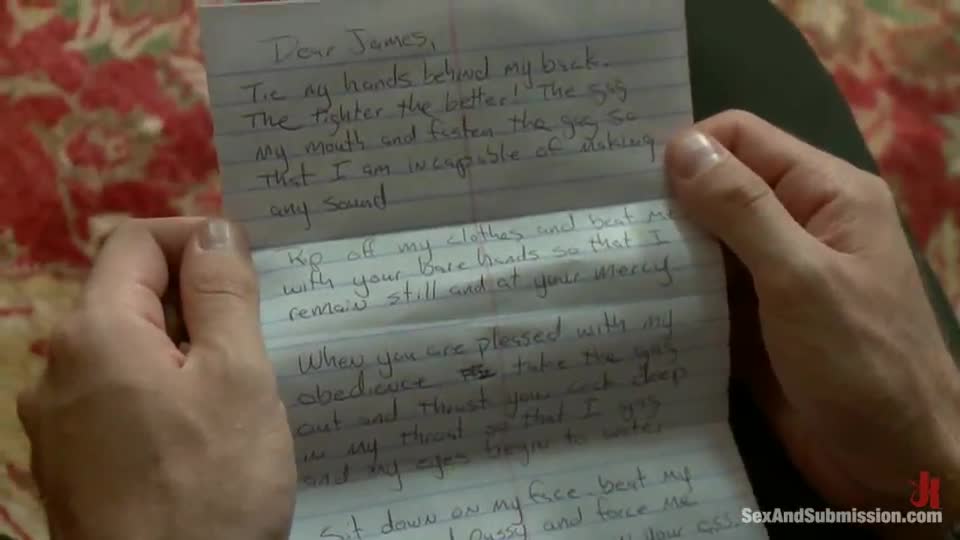 Dear James,
Tie my hands behind my back.
The tighter the better! The gag
my mouth and fasten the gag so
that I am incapable of making
any sound
Rip off my clothes and beat me
with your bare hands so that I
remain still and at your mercy
When you are pleased with my
obedience take the gag
out and thrust you cock deep
in my throat so that I gag
and my eyes begin to water
Sit down on my face beat my
pussy and force me
your ass.
SexAndSubmission.com